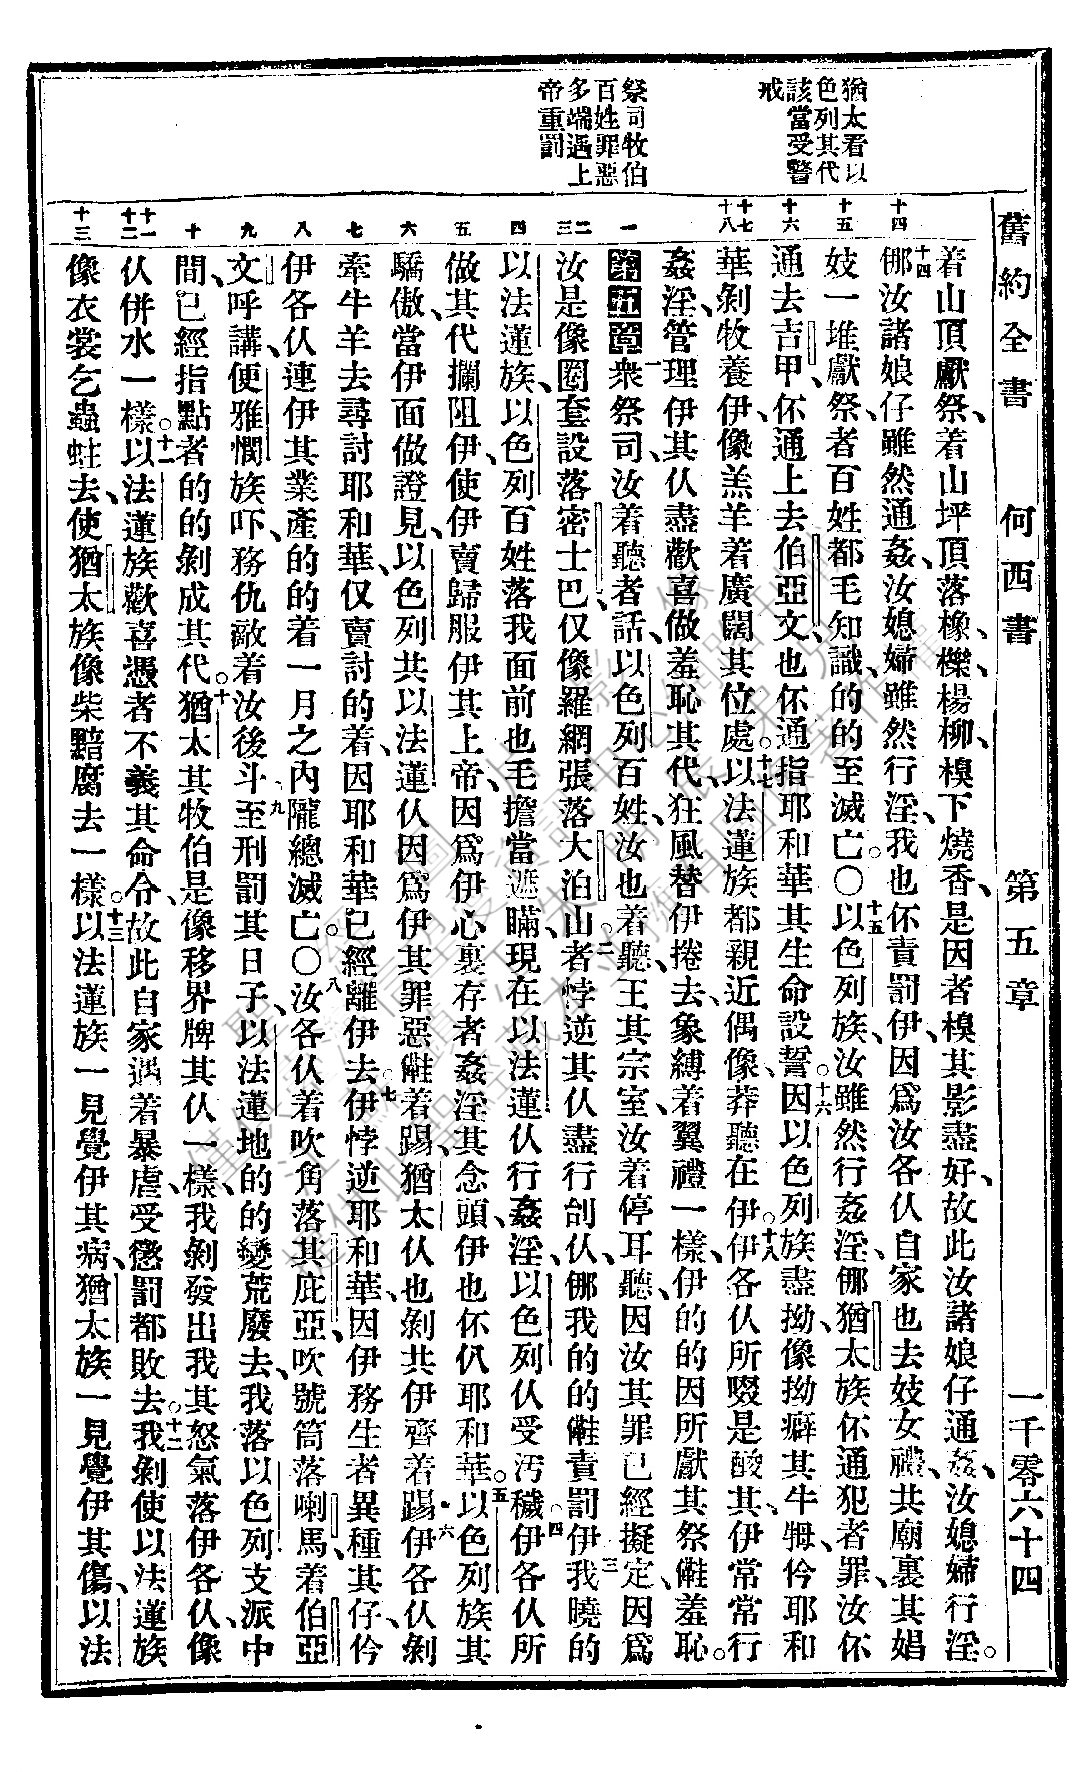 舊約全書 何西書 第五章 一千零六十四
猶太看以
色列其代
該當受警
戒
祭司牧伯
百姓罪惡
多端遇上
帝重罰
十四
十五
十六
十七
十八
一
二
三
四
五
六
七
八
九
十
十一
十二
十三
着山頂獻祭、着山坪頂落橡、櫟、楊柳、模下燒香、是因者模其影盡好、故此汝諸娘仔通姦、汝媳婦行淫。
十四 㑚汝諸娘仔雖然通姦、汝媳婦雖然行淫、我也伓責罰伊、因爲汝各仈自家也去妓女禮、共廟裏其娼
妓一堆獻祭、者百姓都毛知識、的的至滅亡。○十五以色列族、汝雖然行姦淫、㑚猶太族伓通犯者罪、汝伓
通去吉甲、伓通上去伯亞文、也伓通指耶和華其生命設誓。十六因以色列族盡拗、像拗癖其牛牳、仱耶和
華剝牧養伊、像羔羊着廣闊其位處。十七以法蓮族都親近偶像、莽聽在伊。十八伊各仈所啜是酸其、伊常常行
姦淫、管理伊其仈盡歡喜做羞恥其代、狂風替伊捲去、象縛着翼禮一樣、伊的的因所獻其祭、𠋡羞恥。
第五章 一衆祭司汝着聽者話、以色列百姓、汝也着聽、王其宗室、汝着停耳聽、因汝其罪已經擬定、因爲
汝是像圈套設落密士巴、仅像羅網張落大泊山。二者悖逆其仈盡行刣仈、㑚我的的𠋡責罰伊、三我曉的
以法蓮族、以色列百姓落我面前也毛擔當遮瞞、現在以法蓮仈行姦淫、以色列仈受汚穢、四伊各仈所
做其代攔阻伊、使伊賣歸服伊其上帝、因爲伊心裏存者姦淫其念頭、伊也伓仈耶和華。五以色列族其
驕傲、當伊面做證見、以色列共以法蓮仈因爲伊其罪惡𠋡着踢、猶太仈也剝共伊齊着踢、六伊各仈剝
牽牛羊去尋討耶和華、仅賣討的着、因耶和華已經離伊去。七伊悖逆耶和華、因伊務生者異種其仔、仱
伊各仈連伊其業產的的着一月之內隴總滅亡。○八汝各仈着吹角落其庇亞、吹號筒落喇馬、着伯亞
文呼講、便雅憫族吓、務仇敵着汝後斗、九至刑罰其日子、以法蓮地的的變荒廢去、我落以色列支派中
間、已經指點者的的剝成其代。十猶太其牧伯是像移界牌其仈一樣、我剝發出我其怒氣落伊各仈、像
仈併水一樣。十一以法蓮族歡喜憑者不義其命令、故此自家遇着暴虐、受懲罰都敗去。十二我剝使以法蓮族
像衣裳乞蟲蛀去、使猶太族像柴黯腐去一樣。十三以法蓮族一見覺伊其病、猶太族一見覺伊其傷、以法